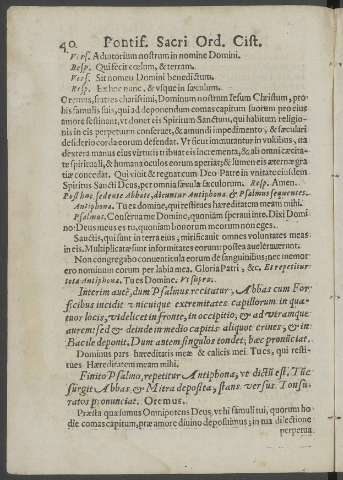 40. Pontif. Sacri Ord. Cist.
Vers. Adiutorium nostrum in nomine Domini.
Resp. Qui fecit cœlum, & terram.
Vers. Sit nomen Domini benedictum.
Resp. Ex hoc nunc, & vsque in sæculum.
Oremus, fratres charissimi, Dominum nostrum Iesum Christum, pro
his famulis suis, qui ad deponendum comas capitum suorum pro eius
amore festinant, vt donet eis Spiritum Sanctum, qui habitum religio-
nis in eis perpetuum conseruet, & a mundi impedimento, & sæculari
desiderio corda eorum defendat. Vt sicut immutantur in vultibus, ita
dextera manus eius virtutis tribuat eis incrementa, & ab omni cæcita-
te spirituali, & humana oculos eorum aperiat; & lumen eis æternæ gra-
tiæ concedat. Qui viuit & regnat cum Deo Patre in vnitate eiusdem
Spiritus Sancti Deus, per omnia sæcula sæculorum. Resp. Amen.
Post hoc sedente Abbate, dicuntur Antiphona & Psalmus sequentes.
Antiphona. Tu es domine, qui restitues hæreditatem meam mihi.
Psalmus. Conserua me Domine, quoniam speraui in te. Dixi Domi-
no: Deus meus es tu, quoniam bonorum meorum non eges.
Sanctis, qui sunt in terra eius; mirificauit omnes voluntates meas
in eis. Multiplicatæ sunt infirmitates eorum: postea accelerauerunt.
Non congregabo conuenticula eorum de sanguinibus; nec memor
ero nominum eorum per labia mea. Gloria Patri, &c. Et repetitur
tota Antiphona. Tu es Domine. Vt supra.
Interim autẽ, dum Psalmus recitatur, Abbas cum For-
ficibus incidit vnicuique extremitates capillorum in qua-
tuor locis, videlicet in fronte, in occipitio, & ad vtramque
aurem: sed & deinde in medio capitis aliquot crines; & in
Bacile deponit. Dum autem singulos tondet; hæc pronũciat.
Dominus pars hæreditatis meæ & calicis mei Tu es, qui resti-
tues Hæreditatem meam mihi.
Finito Psalmo, repetitur Antiphona, vt dictũ est. Tũc
surgit Abbas, & Mitra deposita, stans versus Tonsu-
ratos pronunciat. Oremus.
Præsta quæsumus Omnipotens Deus, vt hi famuli tui, quorum ho-
die comas capitum, præ amore diuino deposuimus; in tua dilectione
perpetua